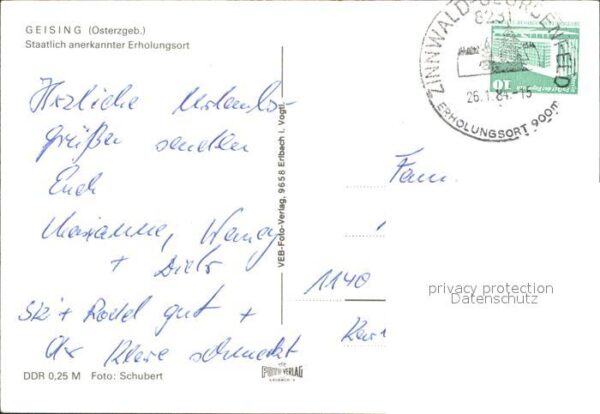 GEISING (Osterzgeb.)
Staatlich anerkannter Erholungsort
Herzliche Urlaubs-
grüße senden
Euch
Marianne,
+ Dieter
Ski + Rodel gut +
der Klare schmeckt
DDR 0,25 M Foto: Schubert
VEB-Foto-Verlag, 9658 Erlbach i. Vogtl.
VEB
FOTO-VERLAG
ERLBACH V.
ZINNWALD-GEORGENFELD
8231
26.1.84-15
ERHOLUNGSORT 900m
10
Fam.
1140
privacy protection
Datenschutz